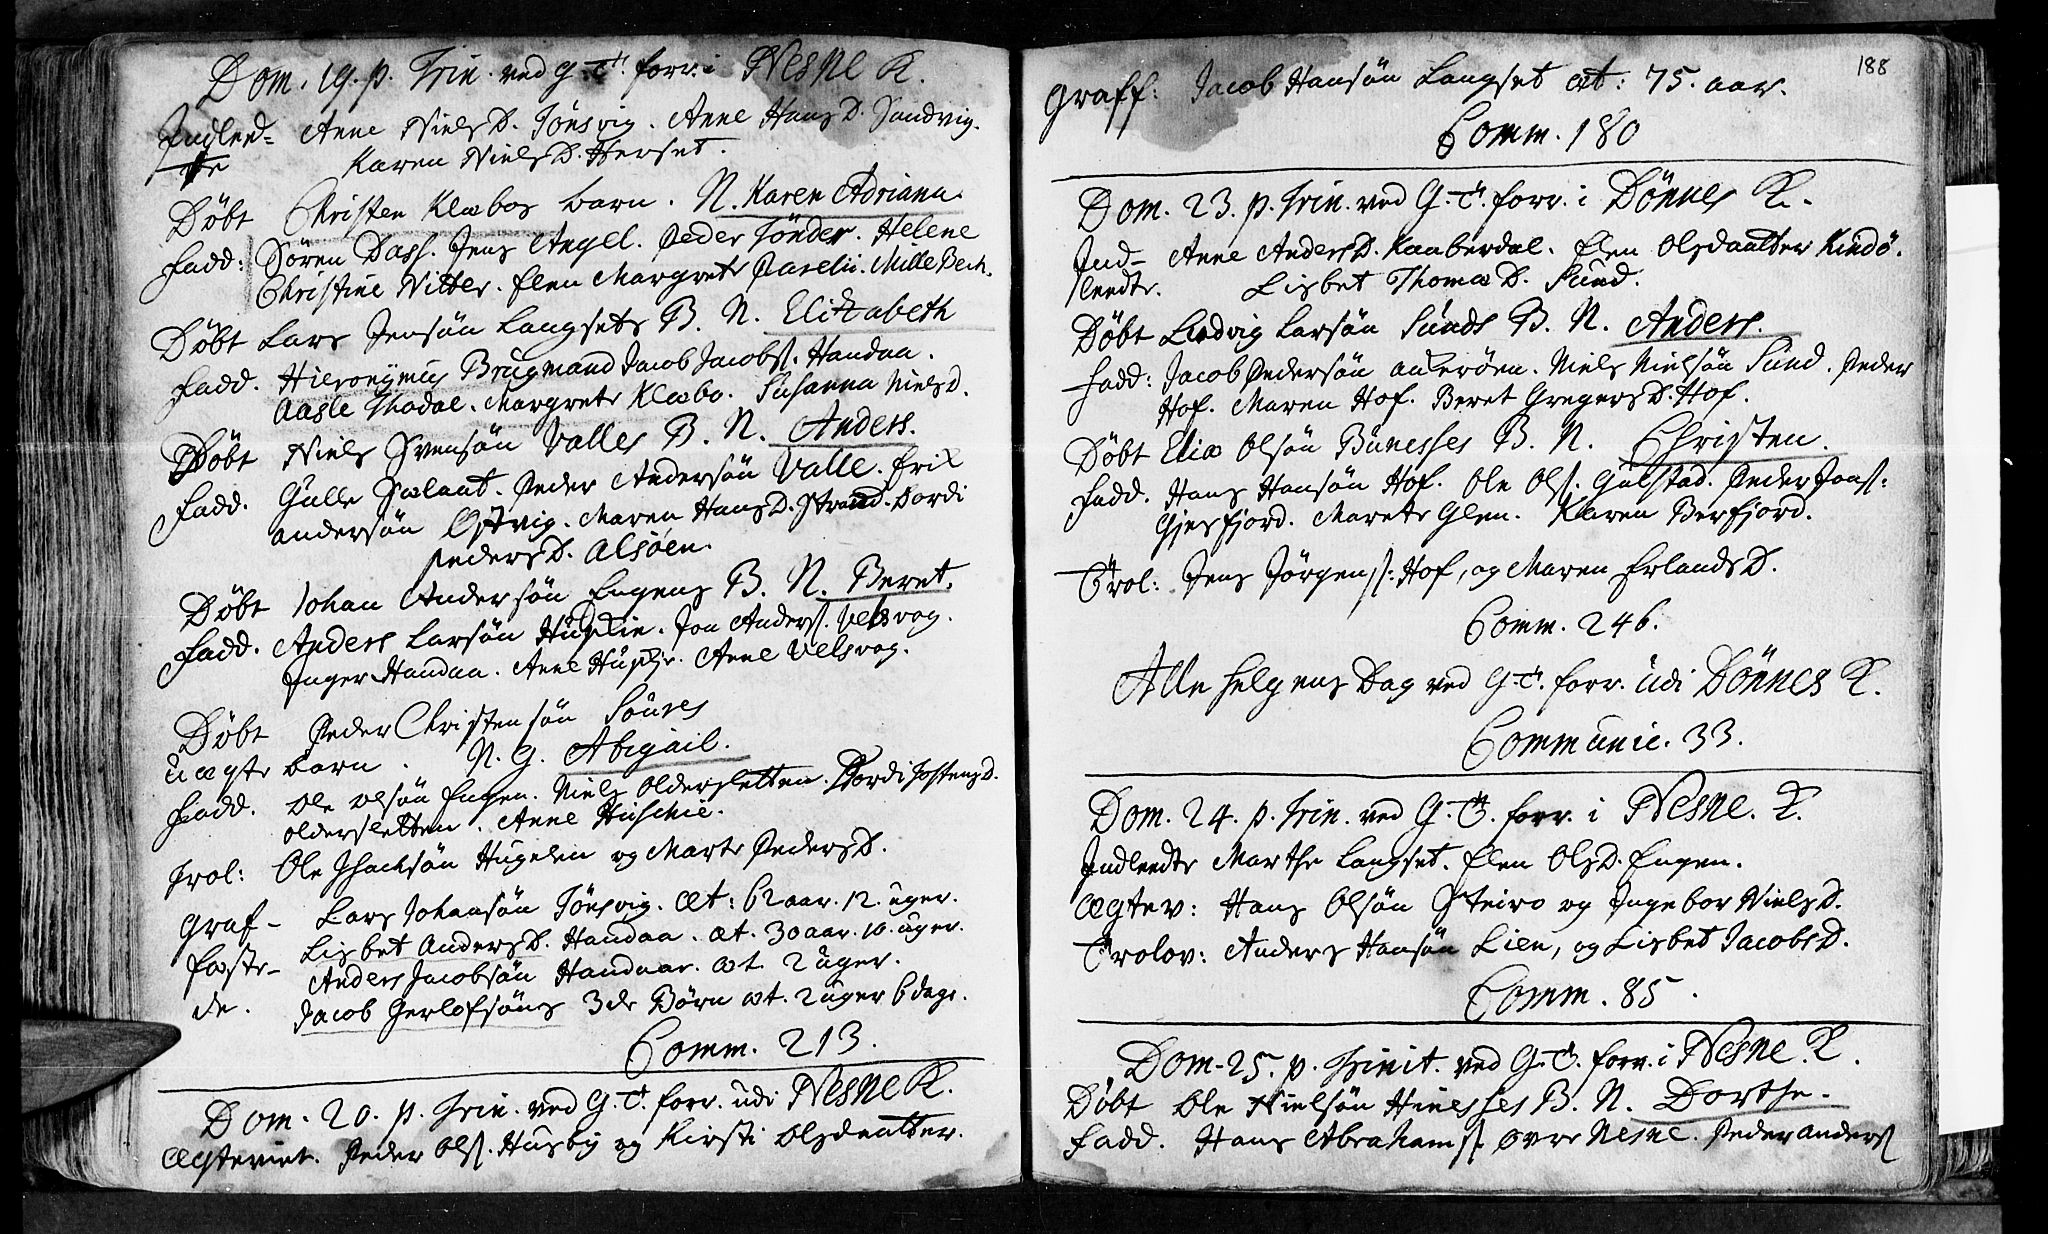 Dom. 19. p. Trin. ved G. T. forr. i Nesne K.
Indleed- Anne NielsD. Tönsvig. Anne HansD. Sandvig.
te Karen NielsD. Herset.
Döbt Christen Klæbos barn. N. Karen Adriana.
Fadd: Sören Dass. Jens Angel. Peder Sönder. Helene
Christine Nitter. Elen Margrete Parelii. Mille Bech.
Döbt Lars Jensön Langsets B. N. Elitzabeth
Fadd. Hieronymus Brugmand Jacob Jacobs. Handaa.
Aasle Thodal. Margrete Klæbo. Susanna NielsD.
Döbt Niels Svensön Valles B. N. Anders.
Fadd. Gulle Peder Andersön Valle. Erik
Andersön Ostvig. Maren HansD. Strand. Dordi
PedersD. Alsöen.
Döbt Johan Andersön Engens B. N. Beret.
Fadd. Anders Larsön Jon Anders. Velsvog.
Inger Handaa. Anne Anne Velsvog.
Döbt Peder Christensön
uægte barn. N. G. Abigail.
Fadd. Ole Olsön Engen. Niels Oldersletten. Dordi JostensD.
Oldersletten. Anne Huschie.
Trol: Ole Isacksön Hugelen og Marte PedersD.
Graf- Lars Johansön Tönsvig. æt: 62 aar. 12. uger.
fæste- Lisbet AndersD. Handaa. æt. 30 aar. 10. uger.
de. Anders Jacobsön Handaae. æt. 2 uger.
Jacob Gerlofsöns 3de Börn æt. 2 uger 6 dage.
Comm. 213.
Dom. 20. p. Trin. ved G. T. forr. udi Nesne K.
Ægteviet. Peder Ols. Husby og Kirsti Olsdaatter.
188
Graff: Jacob Hansön Langset æt: 75. aar.
Comm. 180
Dom. 23. p. Trin. ved G. T. forr. i Dönnes K.
Ind- Anne AndersD. Kaaberdal. Elen Olsdaatter Kindö.
leedte. Lisbet ThomæD. Sund.
Döbt Ludvig Larsön Sunds B. N. Anders.
Fadd: Jacob Pedersön Niels Nielsön Sund. Peder
Hof. Maren Hof. Beret GregersD. Hof.
Döbt Eliæ Olsön Bünesses B. N. Christen.
Fadd. Hans Hansön Hof. Ole Ols. Gulstad. Peder Jons:
Gjesfjord. Marete Glen. Karen Berfjord.
Trol: Jens Jörgens: Hof, og Maren ErlandsD.
Comm. 246.
Alle helgens Dag ved G. T. forr. udi Dönnes K.
Communic. 33.
Dom. 24. p. Trin. ved G. T. forr. i Nesne. K.
Indleedte Marthe Langset. Elen OlsD. Engen.
Ægtev: Hans Olsön Steiro og Ingebor NielsD.
Trolov: Anders Hansön Lien, og Lisbet JacobsD.
Comm. 85.
Dom. 25. p. Trinit. ved G. T. forr. i Nesne. K.
Döbt Ole Nielsön Hinesses B. N. Dorthe.
Fadd. Hans Abrahams. övre Nesne. Peder Anders